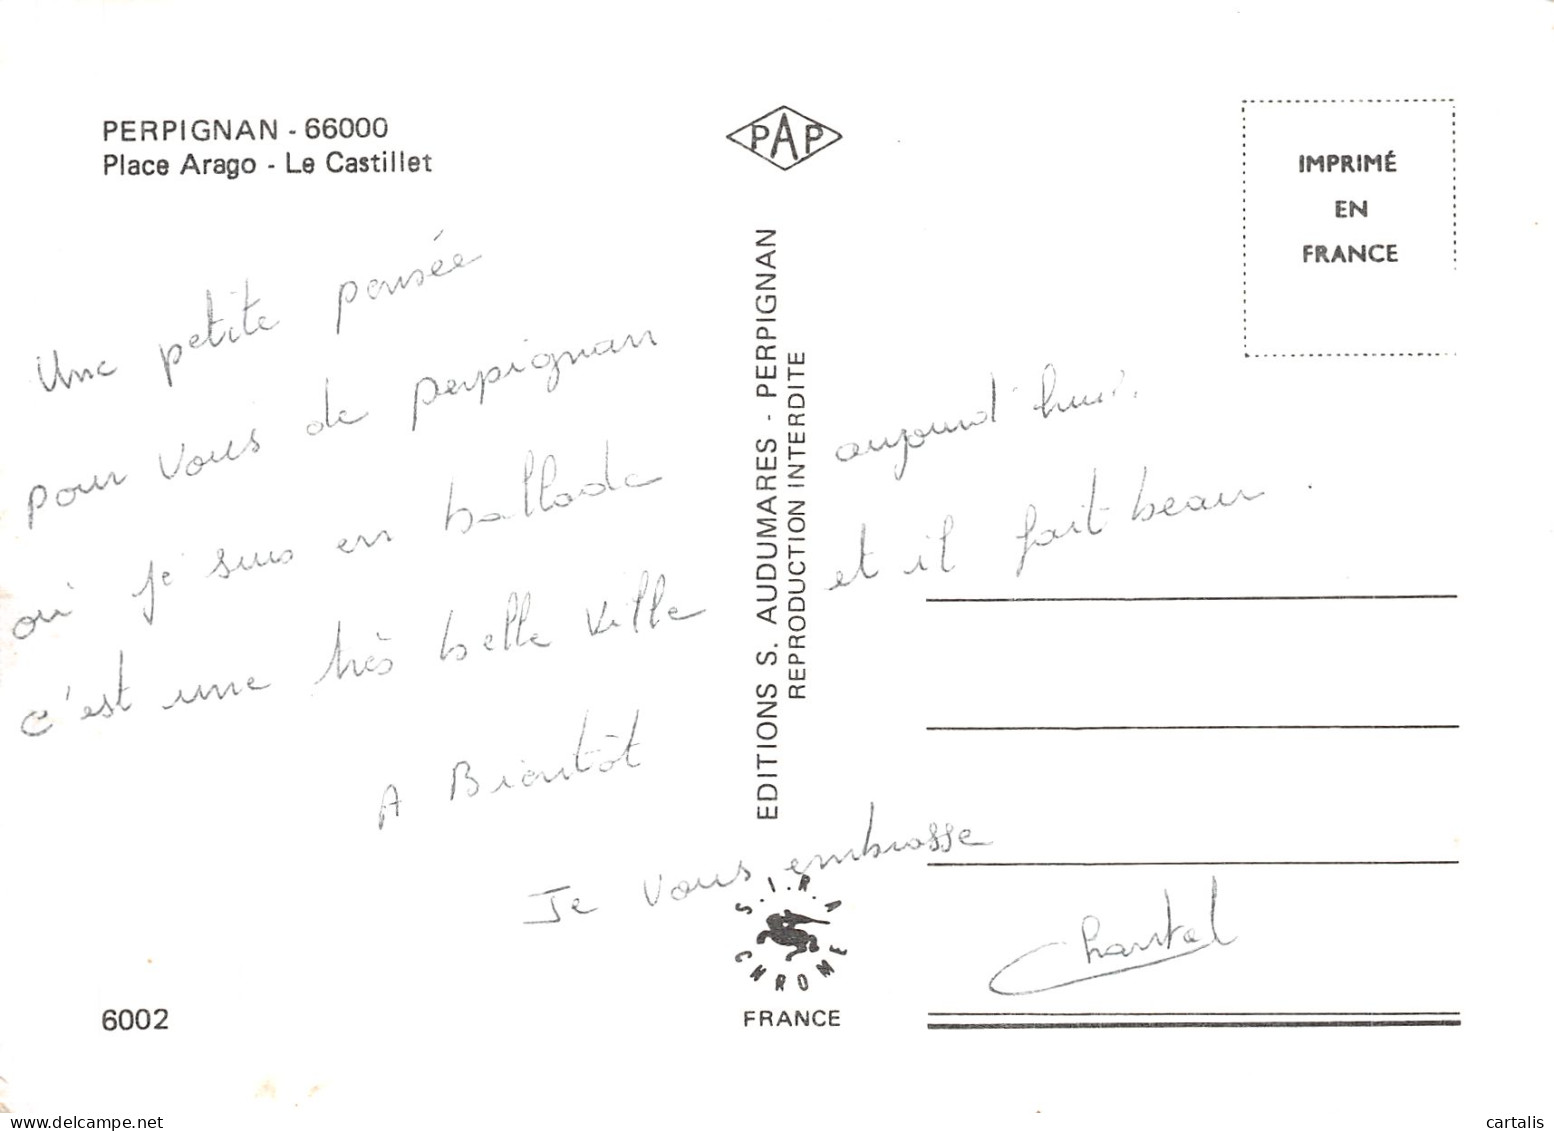 PERPIGNAN - 66000
Place Arago - Le Castillet
PAP
IMPRIMÉ
EN
FRANCE
Une petite pensée
pour vous de perpignan
où je suis en ballade aujourd'hui.
c'est une très belle ville et il fait beau.
A Bientôt
Je vous embrasse
Chantal
EDITIONS S. AUDUMARES - PERPIGNAN
REPRODUCTION INTERDITE
S.I.R.A
CHROME
FRANCE
6002
www.delcampe.net
cartalis